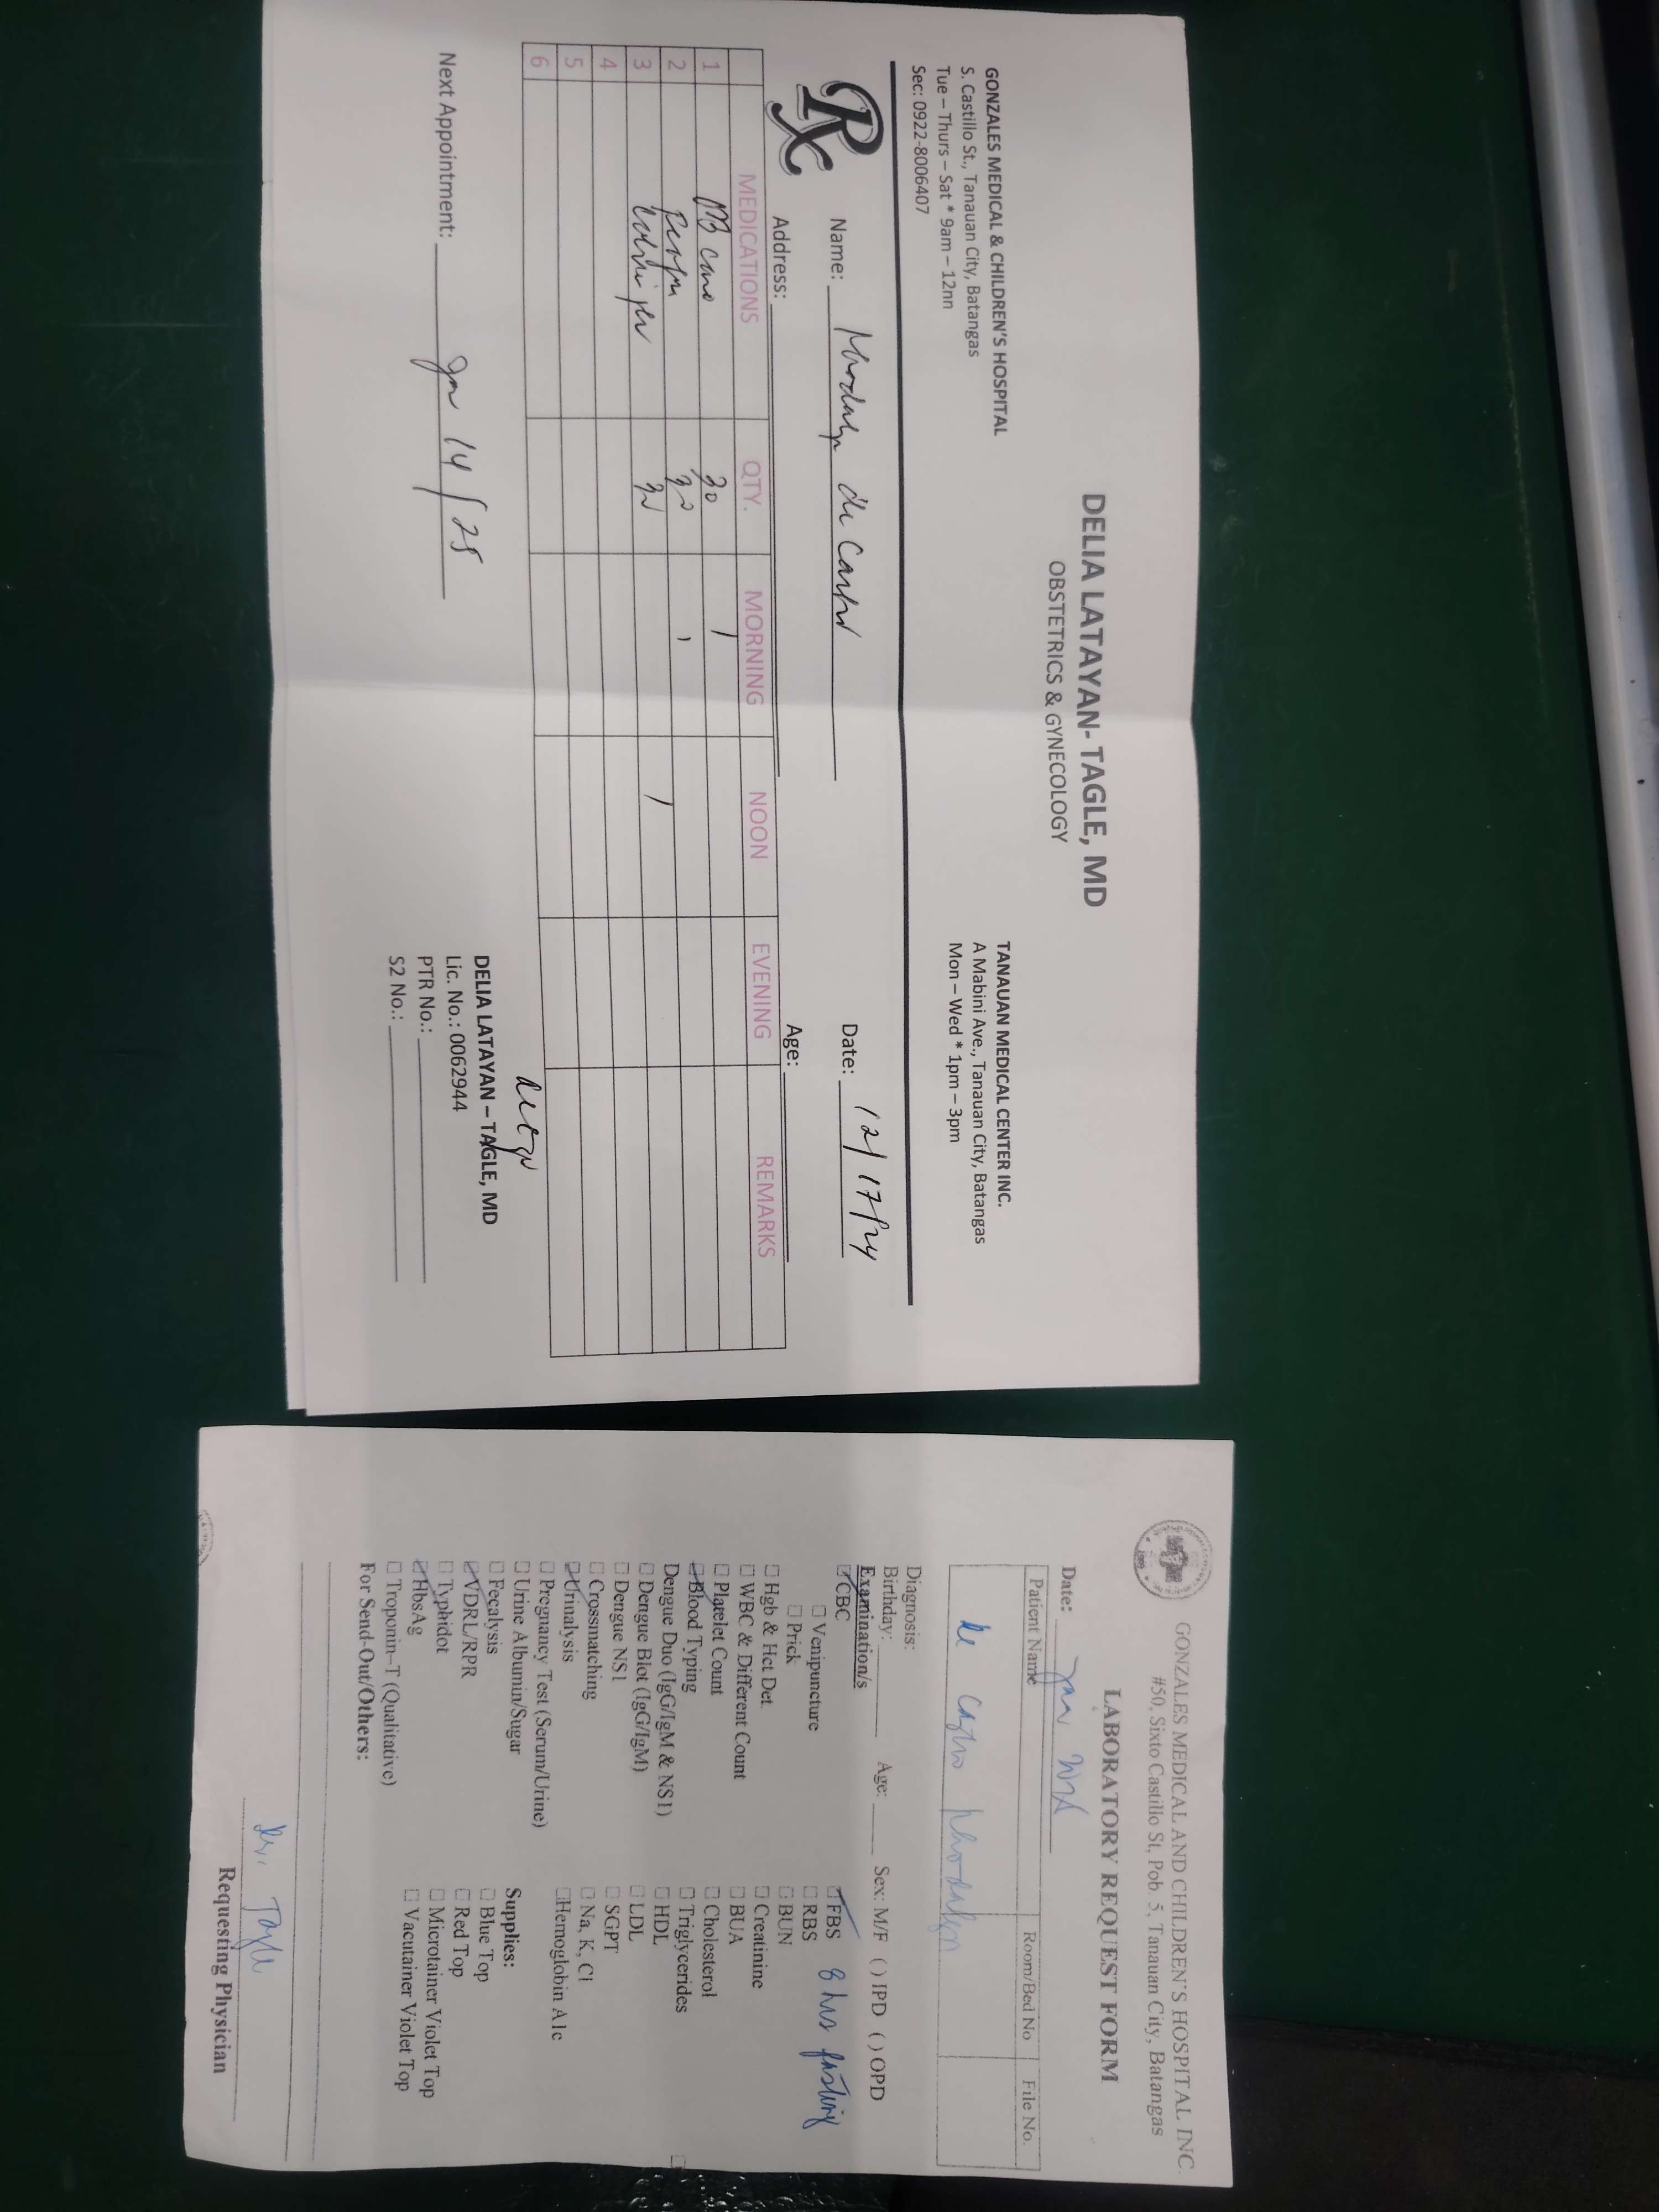 DELIA LATAYAN- TAGLE, MD
OBSTETRICS & GYNECOLOGY
GONZALES MEDICAL & CHILDREN'S HOSPITAL
S. Castillo St., Tanauan City, Batangas
Tue – Thurs – Sat * 9am – 12nn
Sec: 0922-8006407
TANAUAN MEDICAL CENTER INC.
A Mabini Ave., Tanauan City, Batangas
Mon – Wed * 1pm – 3pm
Rx
Name: de Castro Date: 12/17/24
Address: Age:
MEDICATIONS QTY. MORNING NOON EVENING REMARKS
1 30 1
2 30 1
3 30 1
4
5
6
Next Appointment: Jan 14/25
DELIA LATAYAN – TAGLE, MD
Lic. No.: 0062944
PTR No.:
S2 No.:
GONZALES MEDICAL AND CHILDREN'S HOSPITAL INC.
#50, Sixto Castillo St, Pob. 5, Tanauan City, Batangas
LABORATORY REQUEST FORM
Date: Jan
Patient Name Room/Bed No File No.
de Castro Rhodalyn
Diagnosis:
Birthday: Age: Sex: M/F ( ) IPD ( ) OPD
Examination/s
CBC
Venipuncture
Prick
Hgb & Hct Det.
WBC & Different Count
Platelet Count
Blood Typing
Dengue Duo (IgG/IgM & NS1)
Dengue Blot (IgG/IgM)
Dengue NS1
Crossmatching
Urinalysis
Pregnancy Test (Serum/Urine)
Urine Albumin/Sugar
Fecalysis
VDRL/RPR
Typhidot
HbsAg
Troponin–T (Qualitative)
For Send-Out/Others:
FBS 8 hrs fasting
RBS
BUN
Creatinine
BUA
Cholesterol
Triglycerides
HDL
LDL
SGPT
Na, K, Cl
Hemoglobin A1c
Supplies:
Blue Top
Red Top
Microtainer Violet Top
Vacutainer Violet Top
Dr. Tagle
Requesting Physician